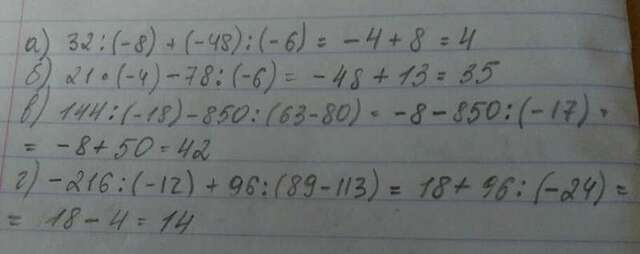 а) 32 : (-8) + (-48) : (-6) = -4 + 8 = 4
б) 21 · (-4) - 78 : (-6) = -48 + 13 = 35
в) 144 : (-18) - 850 : (63 - 80) = -8 - 850 : (-17) =
= -8 + 50 = 42
г) -216 : (-12) + 96 : (89 - 113) = 18 + 96 : (-24) =
= 18 - 4 = 14